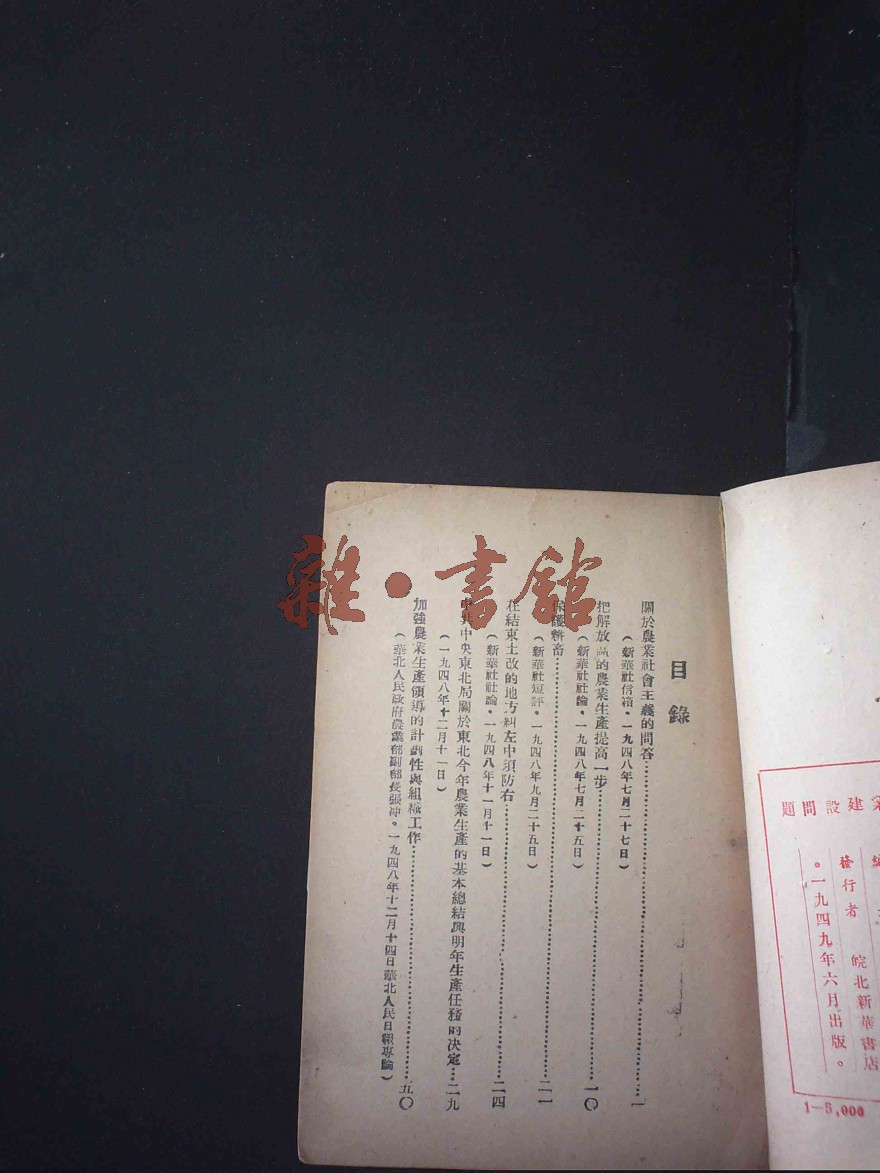 目錄
關於農業社會主義的問答……一
(新華社信箱·一九四八年七月二十七日)
把解放區的農業生產提高一步……一〇
(新華社社論·一九四八年七月二十五日)
保護耕畜……二一
(新華社短評·一九四八年九月二十五日)
在結束土改的地方糾左中須防右……二四
(新華社社論·一九四八年十一月十一日)
中共中央東北局關於東北今年農業生產的基本總結與明年生產任務的決定…二九
(一九四八年十二月十一日)
加強農業生產領導的計劃性與組織工作……五〇
(華北人民政府農業部副部長張冲·一九四八年十二月十四日華北人民日報專論)
業建設問題
編
發行者 皖北新華書店
。一九四九年六月出版。
1—5,000
雜·書館